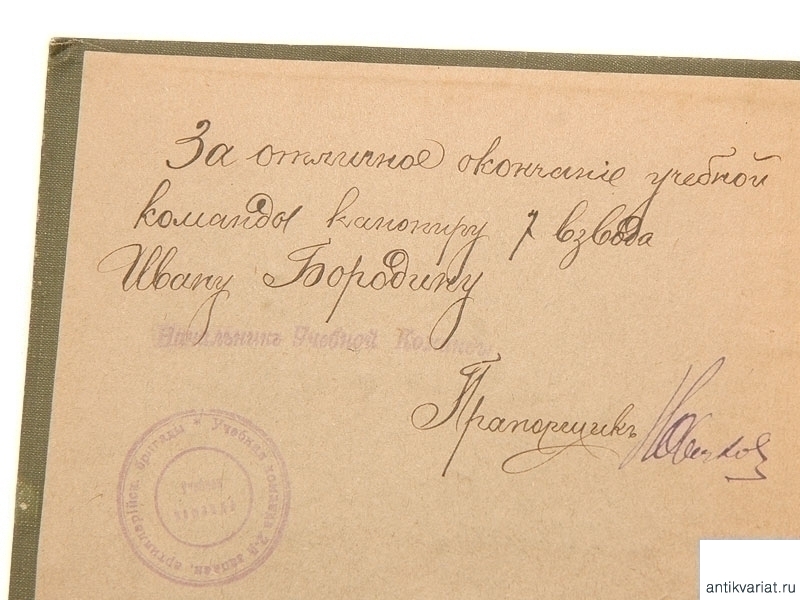 За отличное окончаніе учебной
команды канониру 7 взвода
Ивану Бородину
Начальникъ Учебной Команды
Прапорщикъ
* Учебная команда 2-й запасн. артиллерійск. бригады
antikvariat.ru